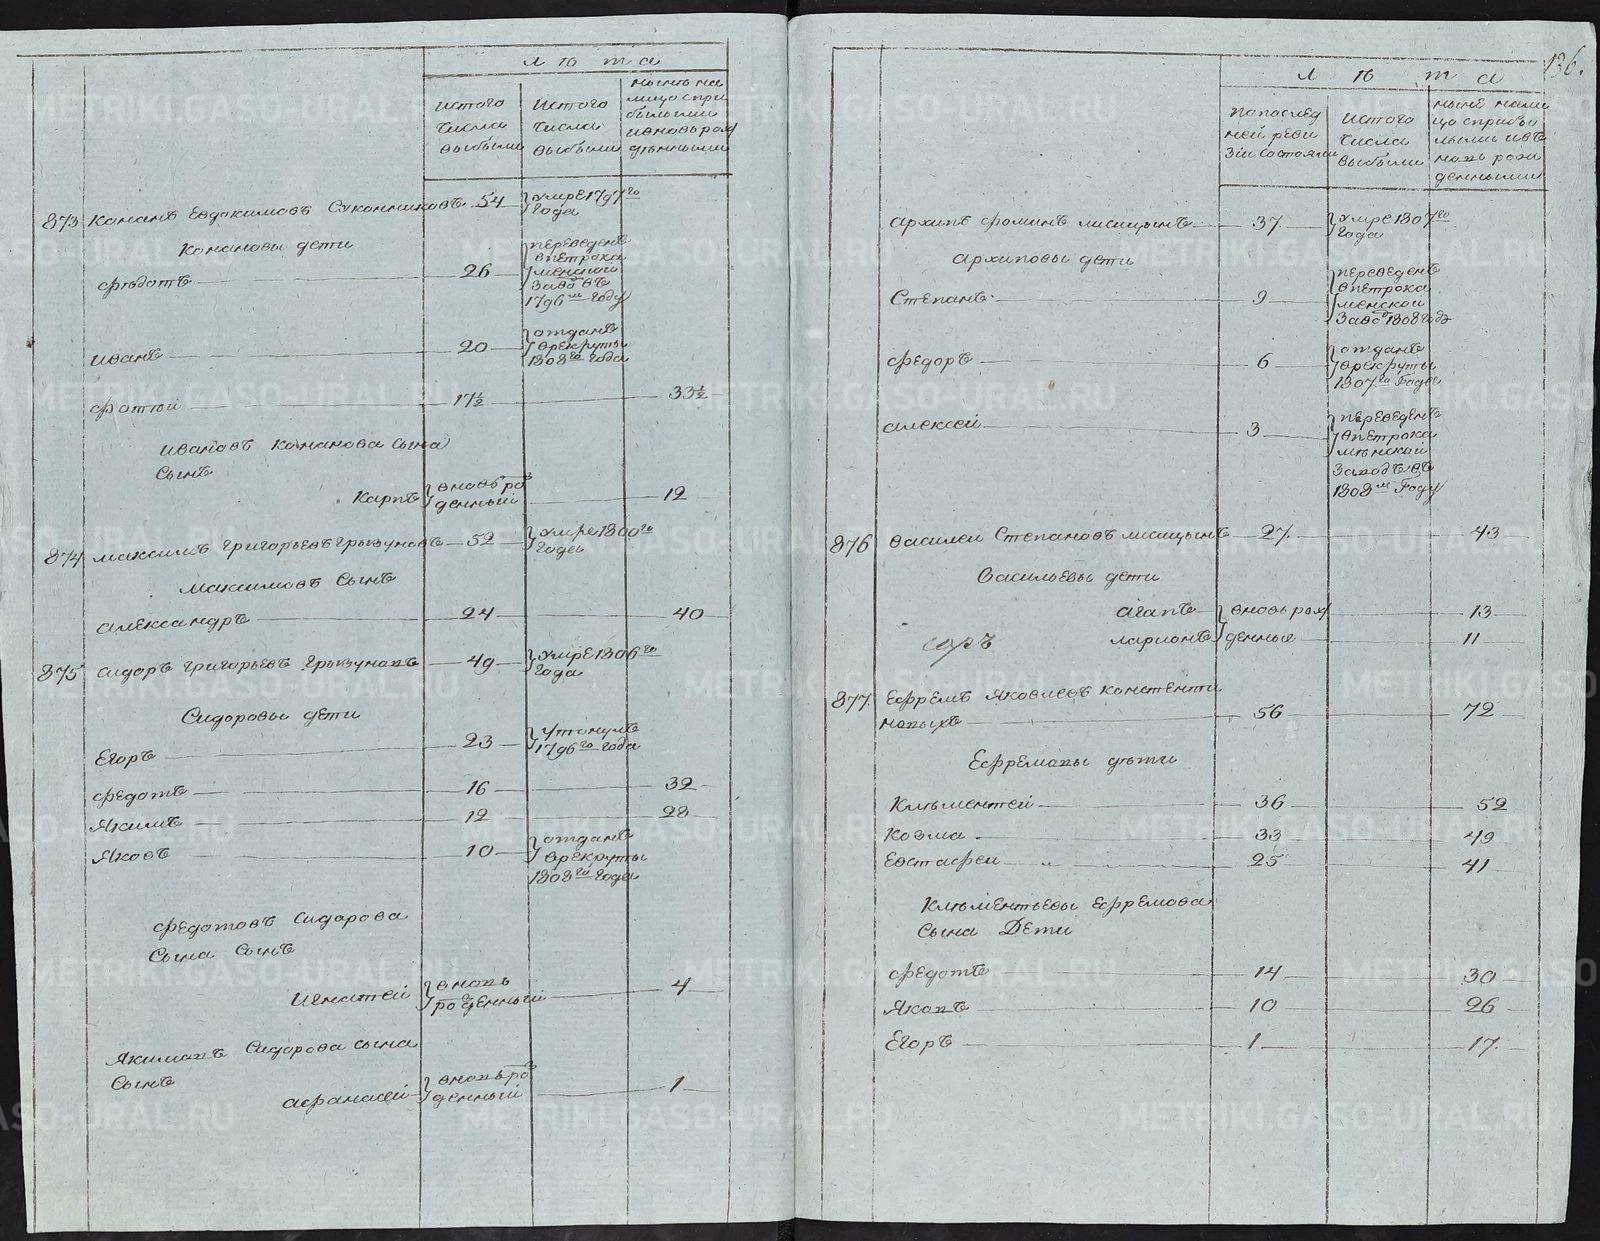 л ѣ т а
изтого
числа
выбыли
изтого
числа
выбыли
нынѣ на
лицо спри
былыми
ивновь рож
денными
873 Конанъ Евдокимовъ Суконниковъ 54 умре 1797го
года
Конановы дети
Федотъ 26 переведенъ
впетрока
менской
заводъ въ
1796м году
иванъ 20 отданъ
врекруты
1808го года
фотей 17½ 33½
ивановъ Конанова сына
сынъ
карпъ вновь ро
жденный 12
874 максимъ григорьевъ грызуновъ 52 умре 1800го
года
максимовъ сынъ
александръ 24 40
875 сидоръ григорьевъ грызуновъ 49 умре 1806го
года
Сидоровы дети
Егоръ 23 утонулъ
1796го года
федотъ 16 32
якимъ 12 28
яковъ 10 отданъ
врекруты
1808го года
федотовъ Сидорова
сына сынъ
игнатей вновь
рожденный 4
якимовъ Сидорова сына
сынъ
афанасей вновь ро
жденный 1
136.
л ѣ т а
попослед
ней реви
зіи состояли
изтого
числа
выбыли
нынѣ нали
цо сприбы
лыми ивъ
новь рож
денными
архипъ фоминъ лисицынъ 37 умре 1807го
года
архиповы дети
Степанъ 9 переведенъ
впетрока
менской
заво 1808 году
федоръ 6 отданъ
врекруты
1807го Года
алексей 3 переведенъ
впетрока
мѣнской
Заводъ въ
1808м Году
876 василей Степановъ лисицынъ 27 43
Васильевы дети
агапъ вновь рож 13
ларионъ денные 11
877 Ефремъ яковлевъ констенти
новыхъ 56 72
Ефремовы дѣти
Клѣментей 36 52
козма 33 49
Евстафеи 25 41
Клѣментьевы ефремова
сына Дети
федотъ 14 30
яковъ 10 26
Егоръ 1 17